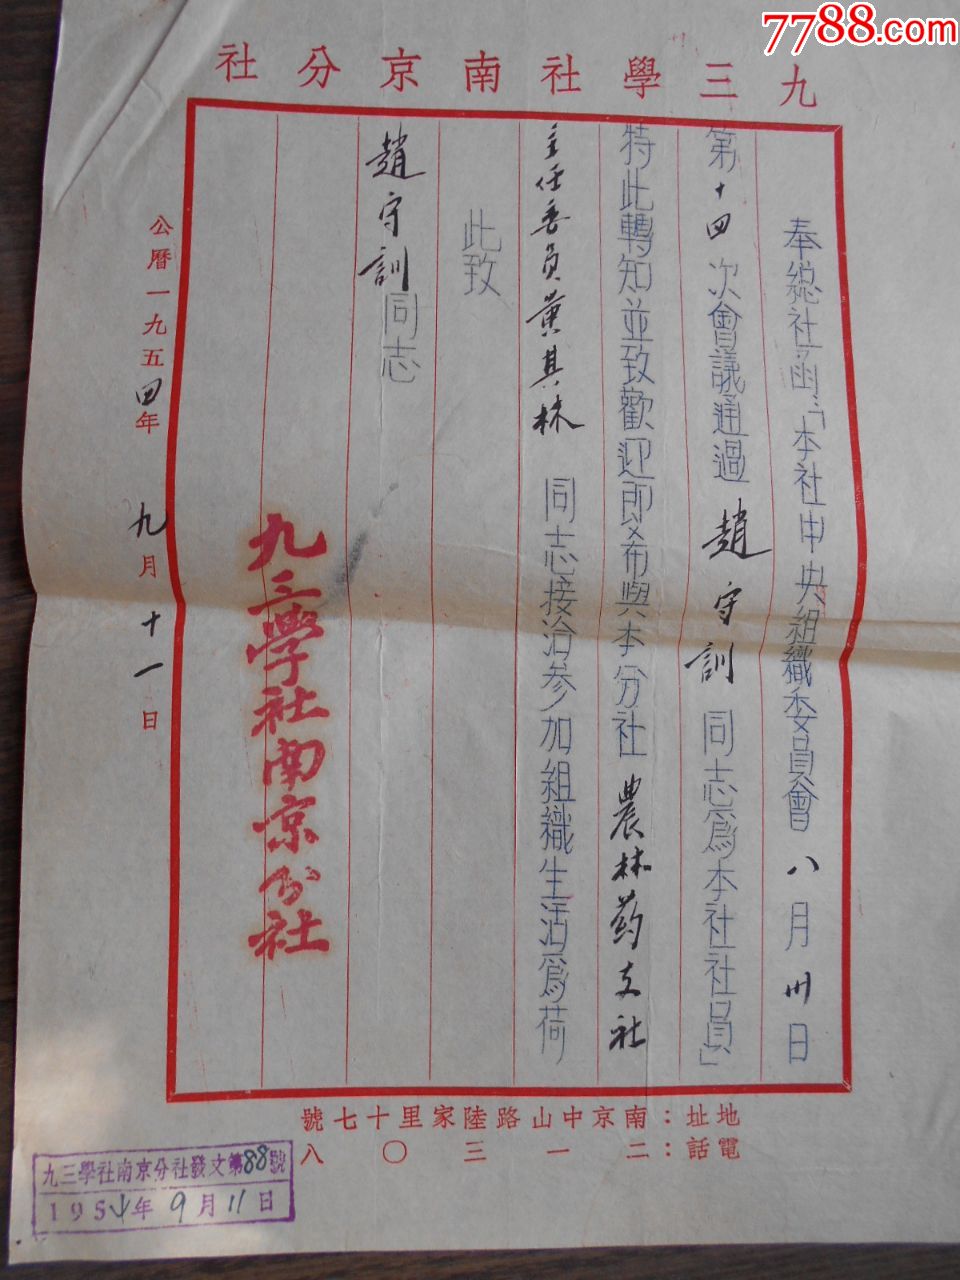 7788.com
九三學社南京分社
奉總社函：「本社中央組織委員會八月卅日
第十四次會議通過趙守訓同志爲本社社員」
特此轉知並致歡迎即希與本分社農林药支社
主任委員黄其林同志接洽參加組織生活爲荷
此致
趙守訓同志
九三学社南京分社
公曆一九五四年九月十一日
地址：南京中山路陸家里十七號
電話：二一三〇八
九三學社南京分社發文第88號
1954年9月11日